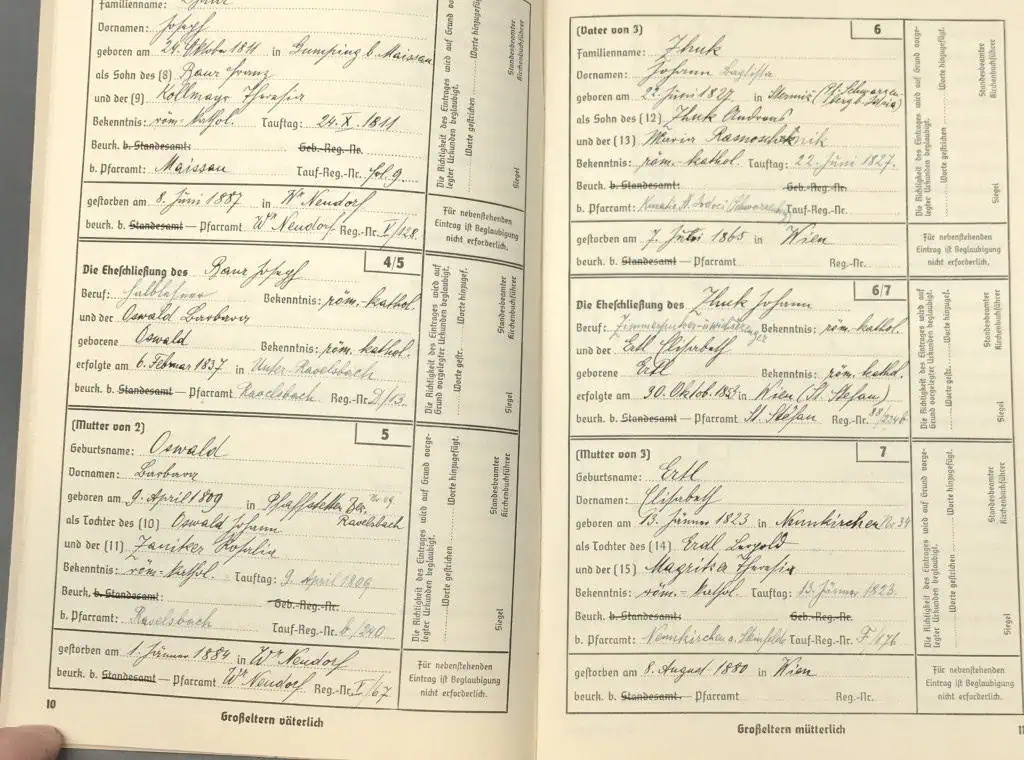 Familienname:
Vornamen: Joseph
geboren am 24. Oktober 1811 in Gumping b. Maissau
als Sohn des (8) Baur Franz
und der (9) Kollmayr Theresia
Bekenntnis: röm. kathol. Tauftag: 24. X. 1811
Beurk. b. Standesamt: Geb.-Reg.-Nr.
b. Pfarramt: Maissau Tauf-Reg.-Nr. fol. 9.
gestorben am 8. Juni 1887 in Wr Neudorf
beurk. b. Standesamt — Pfarramt Wr Neudorf Reg.-Nr. V/128.
Die Richtigkeit des Eintrages wird auf Grund vorgelegter Urkunden beglaubigt.
Worte gestrichen Worte hinzugefügt.
Siegel
Standesbeamter
Kirchenbuchführer
Für nebenstehenden
Eintrag ist Beglaubigung
nicht erforderlich.
4/5
Die Eheschließung des Baur Joseph
Beruf: Halblehner Bekenntnis: röm. kathol.
und der Oswald Barbara
geborene Oswald Bekenntnis: röm. kathol.
erfolgte am 6. Februar 1837 in Unter-Ravelsbach
beurk. b. Standesamt — Pfarramt Ravelsbach Reg.-Nr. D/13.
Die Richtigkeit des Eintrages wird auf
Grund vorgelegter Urkunden beglaubigt.
Worte gestr. Worte hinzugef.
Siegel
Standesbeamter
Kirchenbuchführer
(Mutter von 2) 5
Geburtsname: Oswald
Vornamen: Barbara
geboren am 9. April 1809 in Pfaffstetten Nr. 49
Ravelsbach
als Tochter des (10) Oswald Johann
und der (11) Rosalia
Bekenntnis: röm. kathol. Tauftag: 9. April 1809
Beurk. b. Standesamt: Geb.-Reg.-Nr.
b. Pfarramt: Ravelsbach Tauf-Reg.-Nr. b/240
gestorben am 1. Jänner 1884 in Wr Neudorf
beurk. b. Standesamt — Pfarramt Wr Neudorf Reg.-Nr. V/67
Die Richtigkeit des Eintrages wird auf Grund vorgelegter Urkunden beglaubigt.
Worte gestrichen Worte hinzugefügt.
Siegel
Standesbeamter
Kirchenbuchführer
Für nebenstehenden
Eintrag ist Beglaubigung
nicht erforderlich.
10
Großeltern väterlich
(Vater von 3) 6
Familienname: Zhuk
Vornamen: Johann Baptista
geboren am 22. Juni 1827 in
als Sohn des (12) Zhuk Andreas
und der (13) Maria
Bekenntnis: röm. kathol. Tauftag: 22. Juni 1827.
Beurk. b. Standesamt: Geb.-Reg.-Nr.
b. Pfarramt: Tauf-Reg.-Nr.
gestorben am 7. 1865 in Wien
beurk. b. Standesamt — Pfarramt Reg.-Nr.
Die Richtigkeit des Eintrages wird auf Grund vorgelegter Urkunden beglaubigt.
Worte gestrichen Worte hinzugefügt.
Siegel
Standesbeamter
Kirchenbuchführer
Für nebenstehenden
Eintrag ist Beglaubigung
nicht erforderlich.
6/7
Die Eheschließung des Zhuk Johann
Beruf: Bekenntnis: röm. kathol.
und der Ertl Elisabeth
geborene Ertl Bekenntnis: röm. kathol.
erfolgte am 30. Oktob. in Wien (St. Stefan)
beurk. b. Standesamt — Pfarramt St. Stefan Reg.-Nr. 88/
Die Richtigkeit des Eintrages wird auf
Grund vorgelegter Urkunden beglaubigt.
Worte gestr. Worte hinzugef.
Siegel
Standesbeamter
Kirchenbuchführer
(Mutter von 3) 7
Geburtsname: Ertl
Vornamen: Elisabeth
geboren am 13. Jänner 1823 in Neunkirchen Nr. 34
als Tochter des (14) Erdl Leopold
und der (15) Magritsa Theresia
Bekenntnis: röm. kathol. Tauftag: 13. Jänner 1823.
Beurk. b. Standesamt: Geb.-Reg.-Nr.
b. Pfarramt: Neunkirchen a. Steinfelde Tauf-Reg.-Nr. F/176
gestorben am 8. August 1880 in Wien
beurk. b. Standesamt — Pfarramt Reg.-Nr.
Die Richtigkeit des Eintrages wird auf Grund vorgelegter Urkunden beglaubigt.
Worte gestrichen Worte hinzugefügt.
Siegel
Standesbeamter
Kirchenbuchführer
Für nebenstehenden
Eintrag ist Beglaubigung
nicht erforderlich.
Großeltern mütterlich